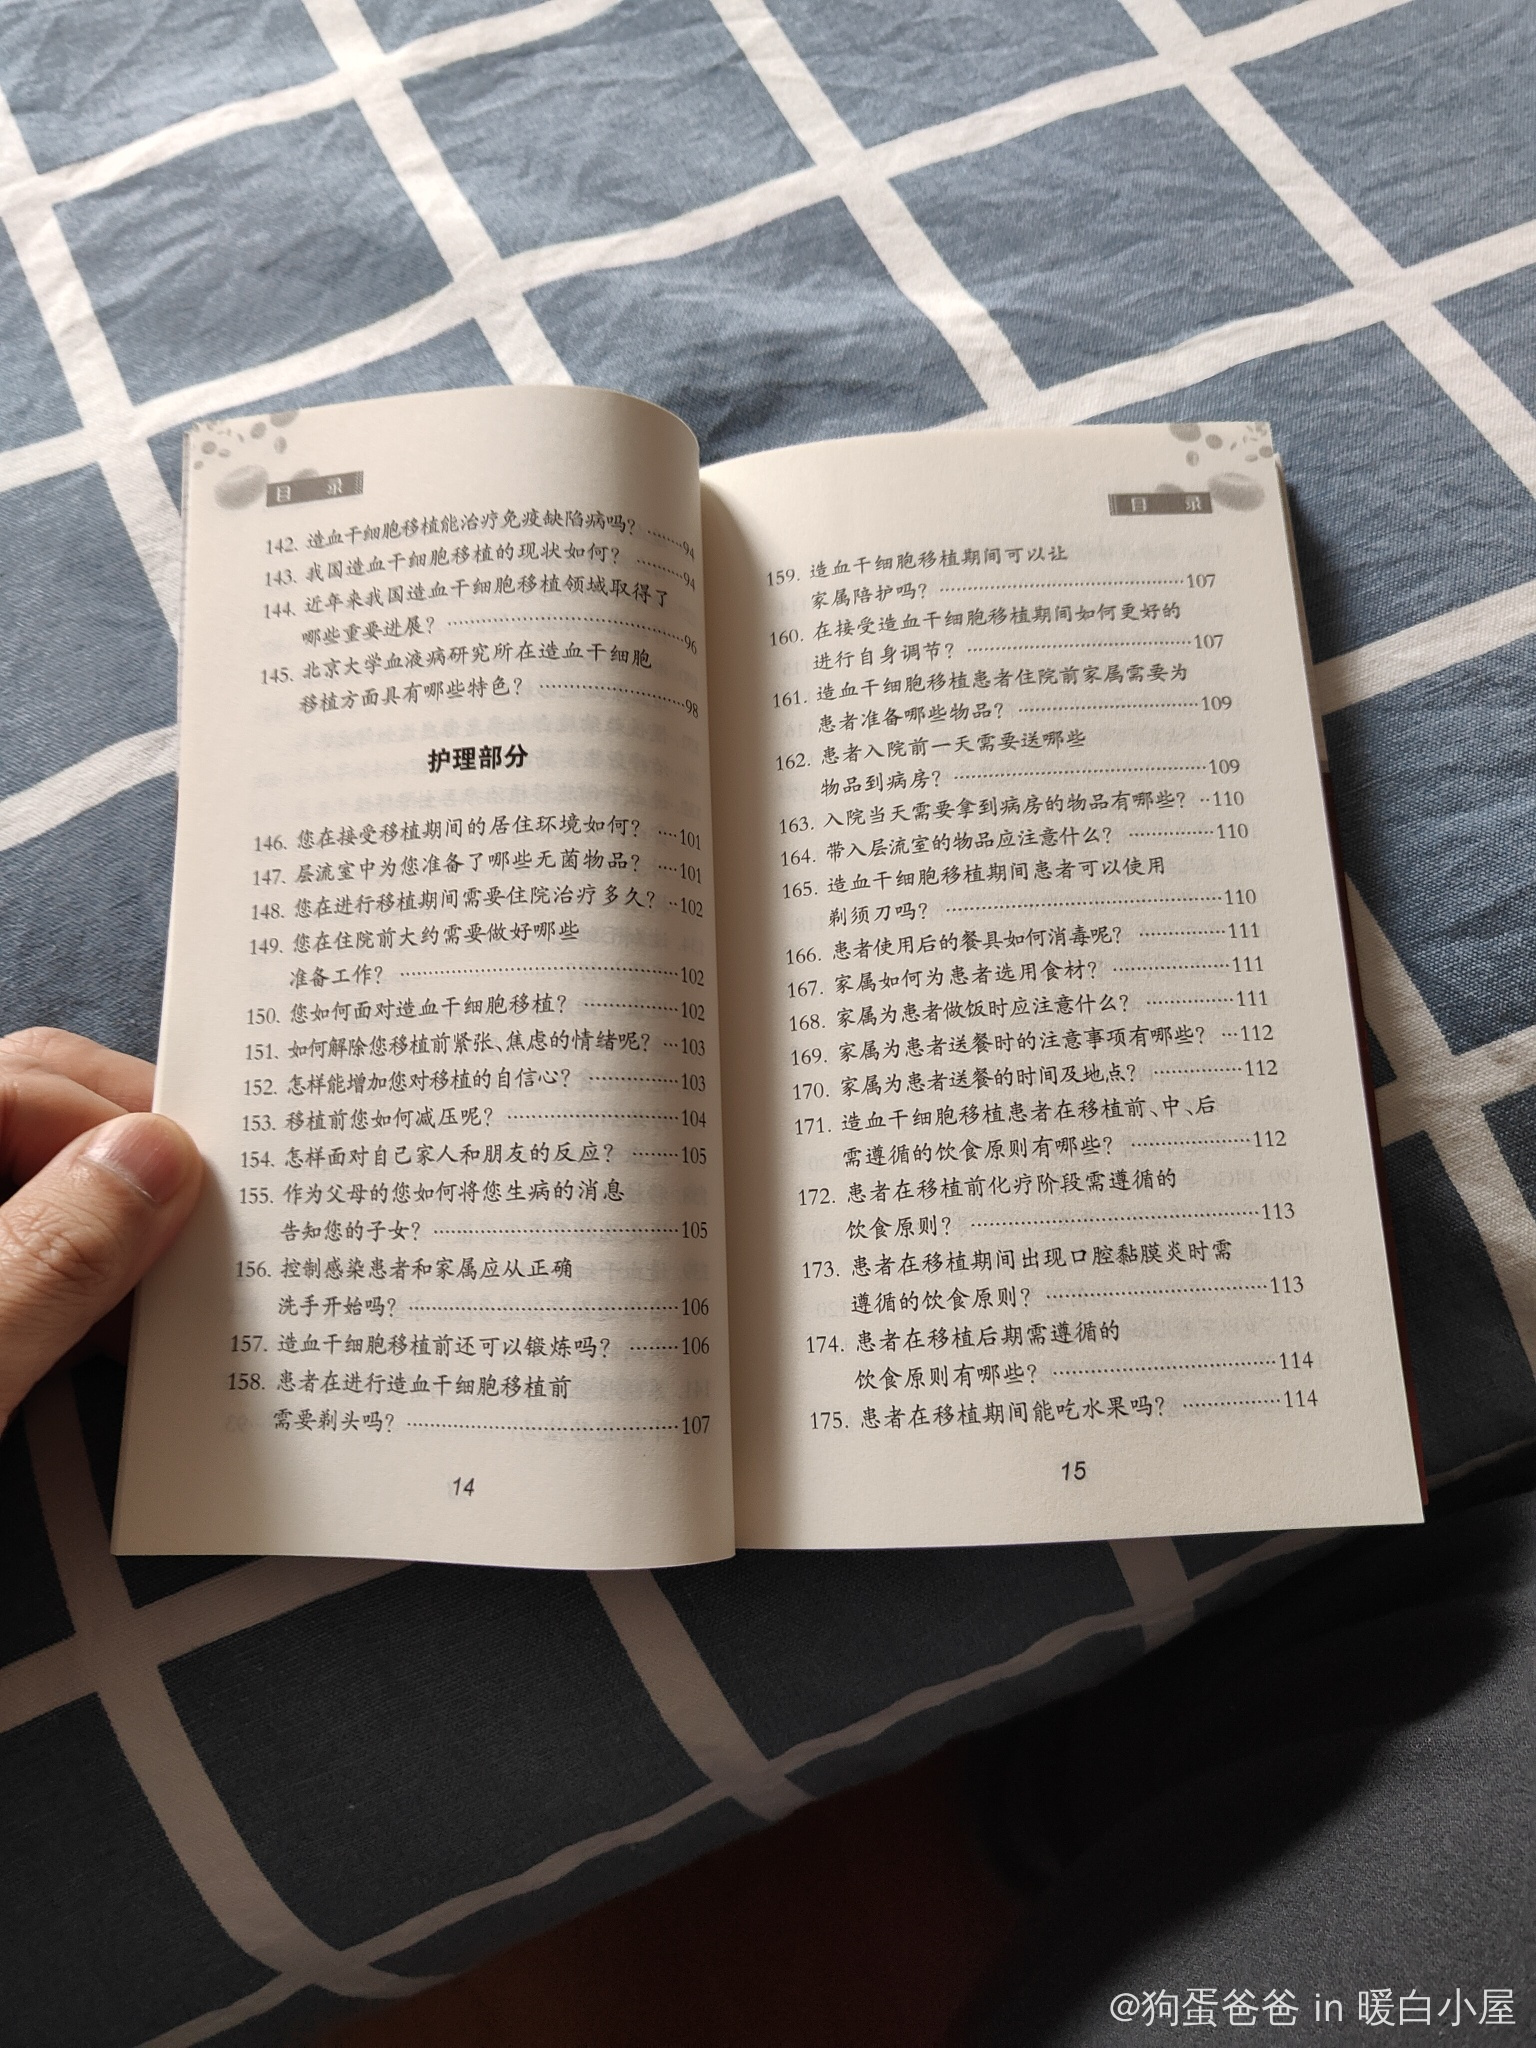 目 录
142. 造血干细胞移植能治疗免疫缺陷病吗? ……94
143. 我国造血干细胞移植的现状如何? ……94
144. 近年来我国造血干细胞移植领域取得了
哪些重要进展? ……96
145. 北京大学血液病研究所在造血干细胞
移植方面具有哪些特色? ……98
护理部分
146. 您在接受移植期间的居住环境如何? ……101
147. 层流室中为您准备了哪些无菌物品? ……101
148. 您在进行移植期间需要住院治疗多久? ……102
149. 您在住院前大约需要做好哪些
准备工作? ……102
150. 您如何面对造血干细胞移植? ……102
151. 如何解除您移植前紧张、焦虑的情绪呢? ……103
152. 怎样能增加您对移植的自信心? ……103
153. 移植前您如何减压呢? ……104
154. 怎样面对自己家人和朋友的反应? ……105
155. 作为父母的您如何将您生病的消息
告知您的子女? ……105
156. 控制感染患者和家属应从正确
洗手开始吗? ……106
157. 造血干细胞移植前还可以锻炼吗? ……106
158. 患者在进行造血干细胞移植前
需要剃头吗? ……107
14
目 录
159. 造血干细胞移植期间可以让
家属陪护吗? ……107
160. 在接受造血干细胞移植期间如何更好的
进行自身调节? ……107
161. 造血干细胞移植患者住院前家属需要为
患者准备哪些物品? ……109
162. 患者入院前一天需要送哪些
物品到病房? ……109
163. 入院当天需要拿到病房的物品有哪些? ··110
164. 带入层流室的物品应注意什么? ……110
165. 造血干细胞移植期间患者可以使用
剃须刀吗? ……110
166. 患者使用后的餐具如何消毒呢? ……111
167. 家属如何为患者选用食材? ……111
168. 家属为患者做饭时应注意什么? ……111
169. 家属为患者送餐时的注意事项有哪些? …112
170. 家属为患者送餐的时间及地点? ……112
171. 造血干细胞移植患者在移植前、中、后
需遵循的饮食原则有哪些? ……112
172. 患者在移植前化疗阶段需遵循的
饮食原则? ……113
173. 患者在移植期间出现口腔黏膜炎时需
遵循的饮食原则? ……113
174. 患者在移植后期需遵循的
饮食原则有哪些? ……114
175. 患者在移植期间能吃水果吗? ……114
15
@狗蛋爸爸 in 暖白小屋